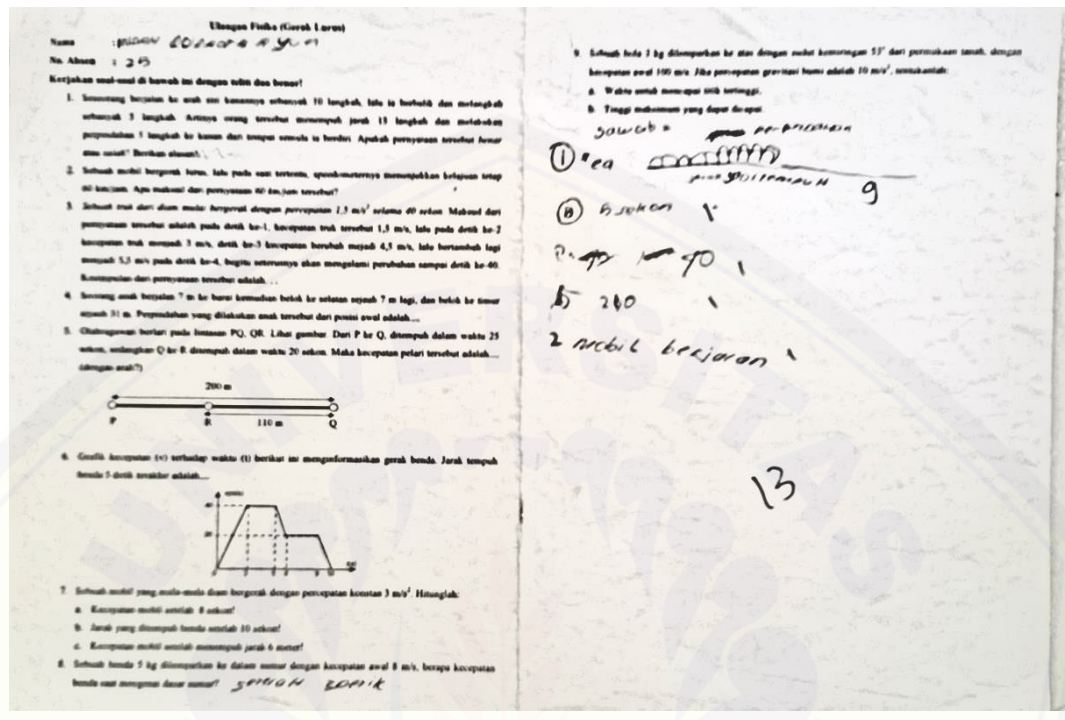 Ulangan Fisika (Gerak Lurus)
Nama :
No. Absen : 25
Kerjakan soal-soal di bawah ini dengan teliti dan benar!
1. Seseorang berjalan ke arah sisi kanannya sebanyak 10 langkah, lalu ia berbalik dan melangkah
sebanyak 5 langkah. Artinya orang tersebut menempuh jarak 15 langkah dan melakukan
perpindahan 5 langkah ke kanan dari tempat semula ia berdiri. Apakah pernyataan tersebut benar
atau salah? Berikan alasan!
2. Sebuah mobil bergerak lurus, lalu pada saat tertentu, speedometernya menunjukkan kelajuan tetap
60 km/jam. Apa maksud dari pernyataan 60 km/jam tersebut?
3. Sebuah truk dari diam mulai bergerak dengan percepatan 1,5 m/s² selama 40 sekon. Maksud dari
pernyataan tersebut adalah pada detik ke-1, kecepatan truk tersebut 1,5 m/s, lalu pada detik ke-2
kecepatan truk menjadi 3 m/s, detik ke-3 kecepatan berubah mejadi 4,5 m/s, lalu bertambah lagi
menjadi 5,5 m/s pada detik ke-4, begitu seterusnya akan mengalami perubahan sampai detik ke-40.
Kesimpulan dari pernyataan tersebut adalah....
4. Seorang anak berjalan 7 m ke barat kemudian belok ke selatan sejauh 7 m lagi, dan belok ke timur
sejauh 31 m. Perpindahan yang dilakukan anak tersebut dari posisi awal adalah....
5. Olahragawan berlari pada lintasan PQ, QR. Lihat gambar. Dari P ke Q, ditempuh dalam waktu 25
sekon, sedangkan Q ke R ditempuh dalam waktu 20 sekon. Maka kecepatan pelari tersebut adalah....
(dengan arah?)
200 m
P R 110 m Q
6. Grafik kecepatan (v) terhadap waktu (t) berikut ini menginformasikan gerak benda. Jarak tempuh
benda 5 detik terakhir adalah....
40
20
7. Sebuah mobil yang mula-mula diam bergerak dengan percepatan konstan 3 m/s². Hitunglah:
a. Kecepatan mobil setelah 8 sekon!
b. Jarak yang ditempuh benda setelah 10 sekon!
c. Kecepatan mobil setelah menempuh jarak 6 meter!
8. Sebuah benda 5 kg dilemparkan ke dalam sumur dengan kecepatan awal 8 m/s, berapa kecepatan
benda saat mengenai dasar sumur?
9. Sebuah bola 3 kg dilemparkan ke atas dengan sudut kemiringan 53° dari permukaan tanah, dengan
kecepatan awal 100 m/s. Jika percepatan gravitasi bumi adalah 10 m/s², tentukanlah:
a. Waktu untuk mencapai titik tertinggi.
b. Tinggi maksimum yang dapat dicapai.
Jawab =
1
9
8 sekon
40
5 200
2 mobil berjalan
13